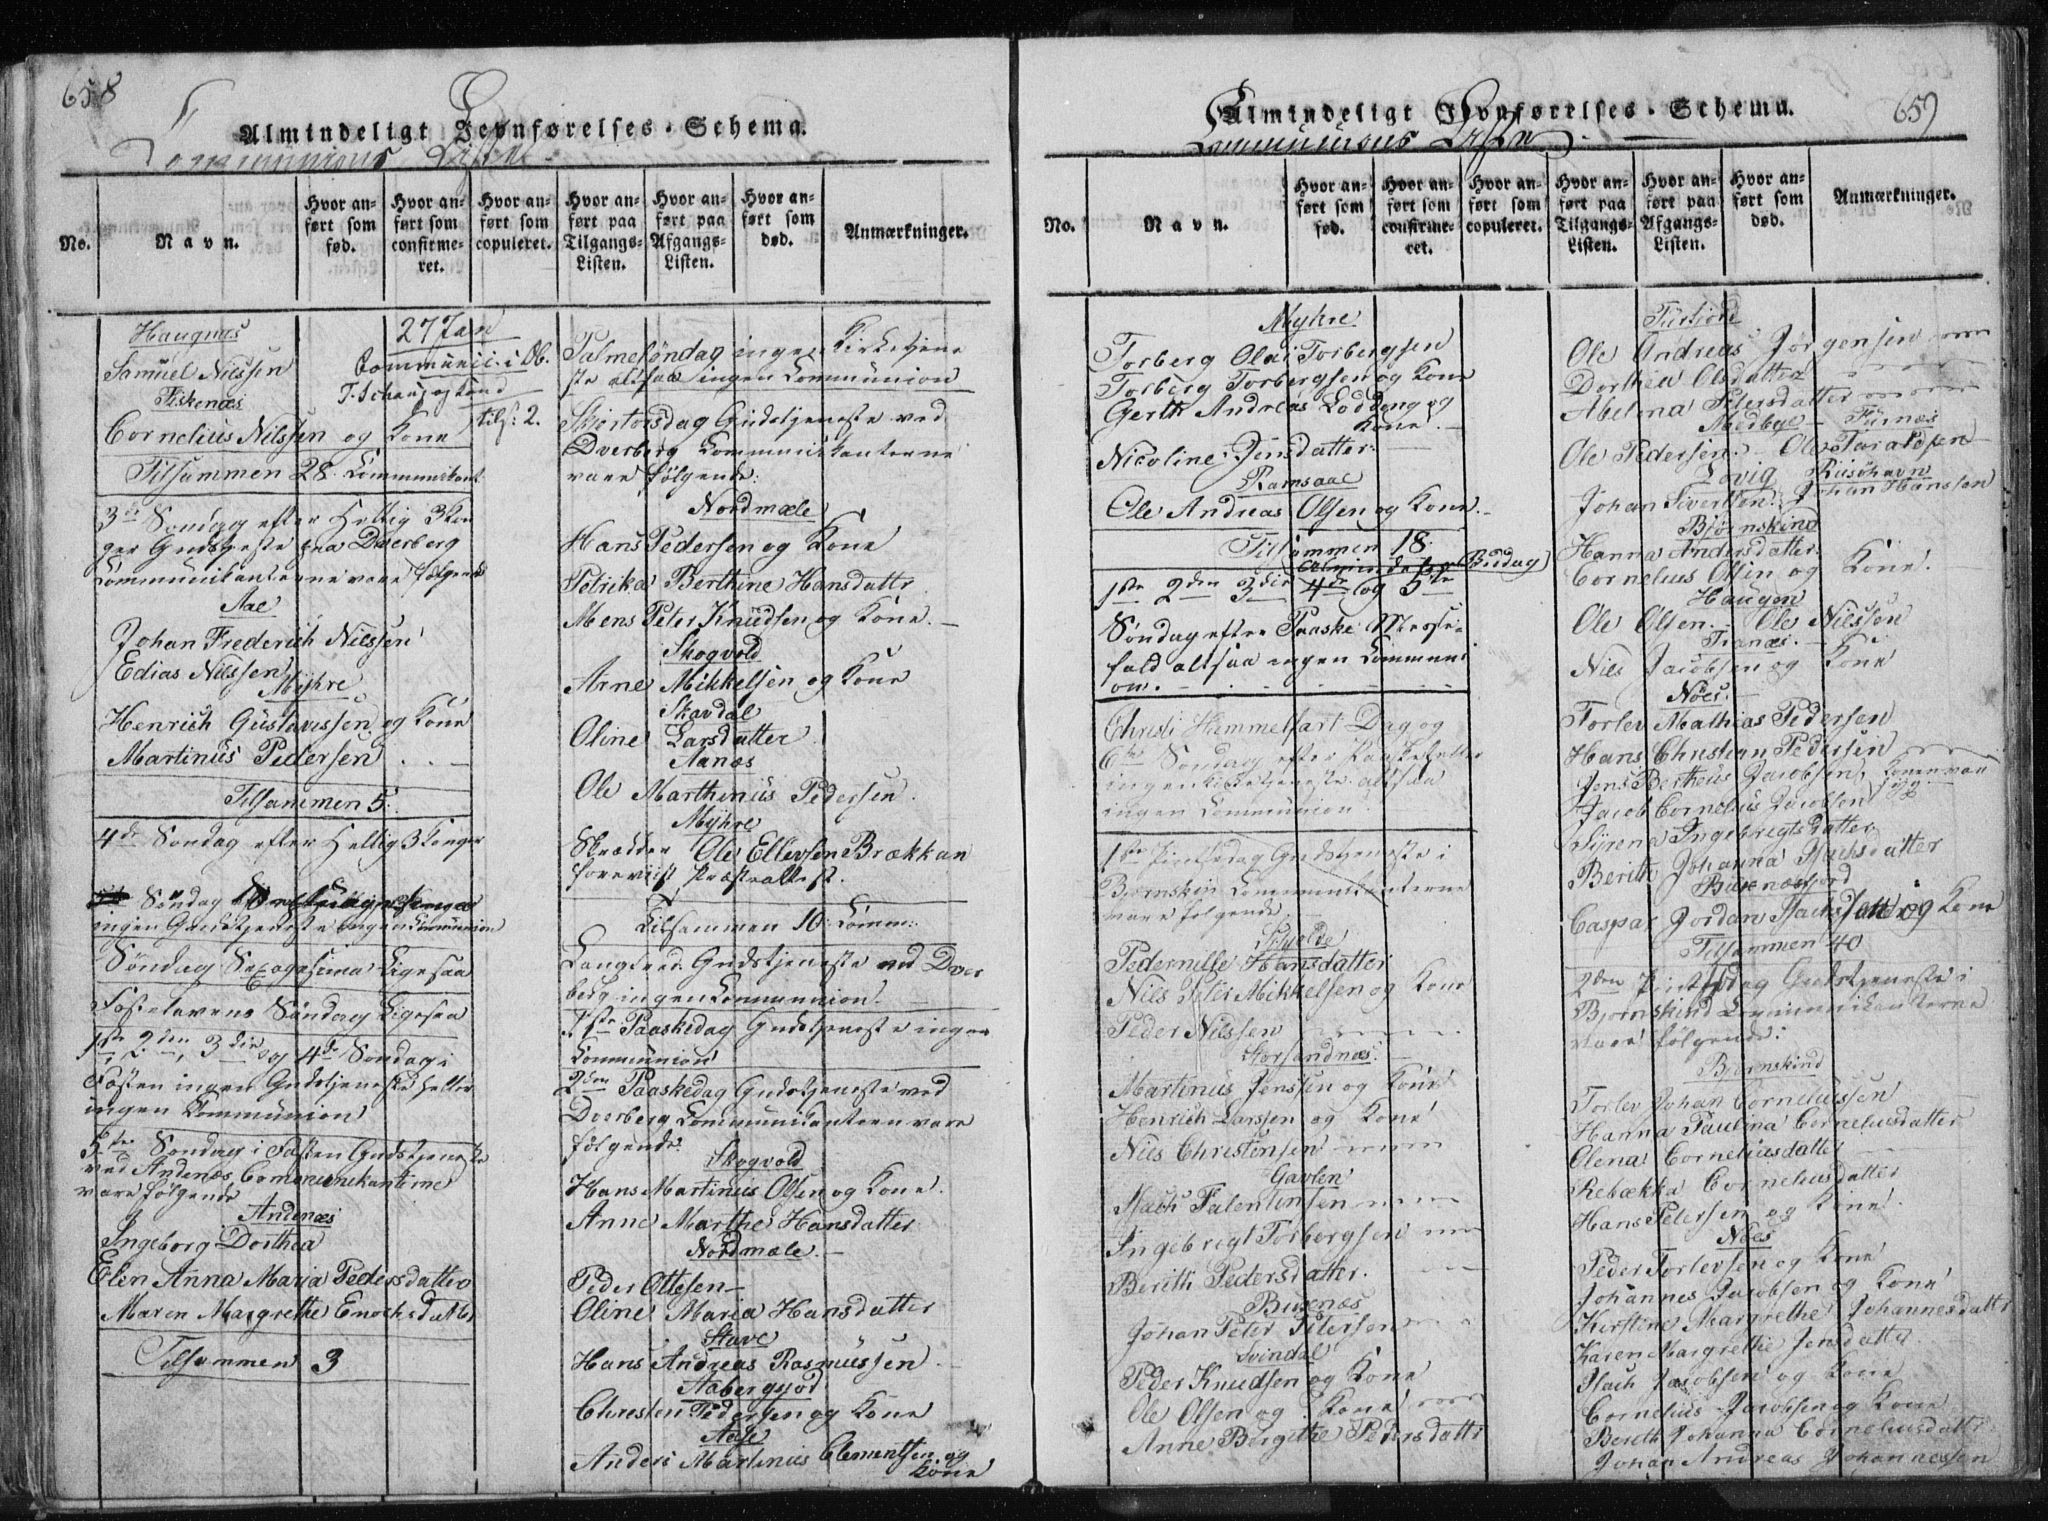 658
Almindeligt Jevnførelses-Schema.
Communions Listen
No.
Navn.
Hvor anført som fød.
Hvor anført som confirmeret.
Hvor anført som copuleret.
Hvor anført paa Tilgangs-Listen.
Hvor anført paa Afgangs-Listen.
Hvor anført som død.
Anmærkninger.
Haugnæs
27 Jan
Samuel Nilssen
Communic. i Ob.
Fiskenæs
T. Schaug og Kone
Cornelius Nilssen og Kone
tils: 2.
Tilsammen 28 Communikant
3de Søndag efter Hellig 3 Kon
ger Gudstjeneste paa Dverberg
Communikanterne vare følgende
Aae
Johan Frederich Nilssen
Edias Nilssen
Myhre
Henrich Gustavssen og Kone
Martinus Pedersen
Tilsammen 5.
4de Søndag efter Hellig 3 Konger
Søndag
ingen Gudstjeneste ingen Communion
Søndag Sexagesima Ligesaa
Fastelavens Søndag Ligesaa
1ste, 2den, 3die og 4de Søndag i
Fasten ingen Gudstjeneste heller
ingen Communion
5te Søndag i Fasten Gudstjeneste
ved Andenæs Communikanterne
vare følgende
Andenæs
Ingeborg Dorthea
Elen Anna Maria Pedersdatter
Maren Margrethe Enochsdatter
Tilsammen 3
Palmesøndag ingen Kirketjene
ste altsaa ingen Communion
Skjertorsdag Gudstjeneste ved
Dverberg Communikanterne
vare følgende:
Nordmæle
Hans Pedersen og Kone
Petrika Berthine Hansdattr
Mens Peter Knudsen og Kone.
Skogvold
Arne Mikkelsen og Kone
Skavdal
Oline Larsdatter
Aanæs
Ole Marthinus Pedersen.
Myhre
Skrædder Ole Ellevsen Brækkan
foreviist Præsteattest.
Tilsammen 10 Comm:
Langfred: Gudstjeneste ved Dver
berg ingen Communion.
1ste Paaskedag Gudstjeneste ingen
Communion
2den Paaskedag Gudstjeneste ved
Dverberg Communikanteren vare
følgende:
Skogvold
Hans Martinus Olsen og Kone.
Anne Marthe Hansdatter
Nordmæle.
Peder Ottesen
Oline Maria Hansdatter
Stave
Hans Andreas Rasmussen
Aabergsjod
Christen Pedersen og Kone
Aase
Anders Martinus Clementsen og
Kone
659
Almindeligt Jevnførelses-Schema.
Communions Listen
No.
Navn.
Hvor anført som fød.
Hvor anført som confirmeret.
Hvor anført som copuleret.
Hvor anført paa Tilgangs-Listen.
Hvor anført paa Afgangs-Listen.
Hvor anført som død.
Anmærkninger.
Myhre
Torberg Olai Torbergsen
Torberg Torbergsen og Kone
Gerth Andreas Lodding og
Kone.
Nicoline Jensdatter.
Ramsaae
Ole Andreas Olsen og Kone.
Tilsammen 18.
(Almindelig Bededag)
1ste 2den 3die 4de og 5te
Søndag efter Paaske Messe-
fald altsaa ingen Communi
on.
Christi Himmelfart Dag og
6te Søndag efter Paaske heller
ingen Kirketjeneste altsaa
ingen Communion.
1ste Pintsedag Gudstjeneste i
Bjørnskin Communikanterne
vare følgende
Pedernille Hansdatter
Nils Peter Mikkelsen og Kone
Peder Nilssen
Storsandnæs.
Martinus Jenssen og Kone
Henrich Larssen og Kone
Nils Christensen
Gavlen
Isach Falentinsen
Ingebrigt Torbergsen
Berith Pedersdatter.
Buxnæs
Johan Peter Petersen
Svindal
Peder Knudsen og Kone
Ole Olsen og Kone
Anne Bergithe Pedersdattr
Ole Andreas Jørgensen
Dorthea Olsdatter
Abelina Petersdatter
Medbye - Furnæs
Ole Pedersen. - Ole Taraldsen
Lovig Riisøhavn
Johan Sivertsen. Johan Hanssen
Bjørnskind
Hanna Andersdatter.
Cornelius Olsen og Kone.
Haugen
Ole Olsen. - Ole Nilssen
Tranæs.
Nils Jacobsen og Kone
Nöes.
Torlev Mathias Pedersen
Hans Christian Pedersen
Jens Bertheus Jacobsen, Konen var
syg
Jacob Cornelius Jacobsen
Syrena Ingebrigtsdatter
Berith Johanna Isachsdatter
Buxnæsfjord
Caspar Jordan Isachsen og Kone
Tilsammen 40
2den Pintsedag Gudstjeneste i
Bjørnskind Communikanterne
vare følgende:
Bjørnskind
Torlev Johan Corneliussen
Hanna Paulina Corneliusdatter
Olena Corneliusdatter
Rebækka Corneliusdatter
Hans Petersen og Kone.
Nöes
Peder Torlevsen og Kone
Johannes Jacobsen og Kone
Kirstine Margrethe Johannesdattr
Karen Margrethe Jensdatter
Isach Jacobsen og Kone
Cornelius Jacobsen og Kone
Bereth Johanna Corneliusdattr
Johan Andreas Johannessen